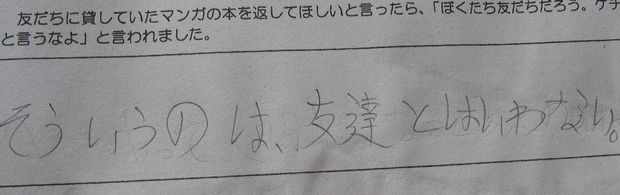 友だちに貸していたマンガの本を返してほしいと言ったら、「ぼくたち友だちだろう。ケチ
と言うなよ」と言われました。
そういうのは、友達とはいわない。